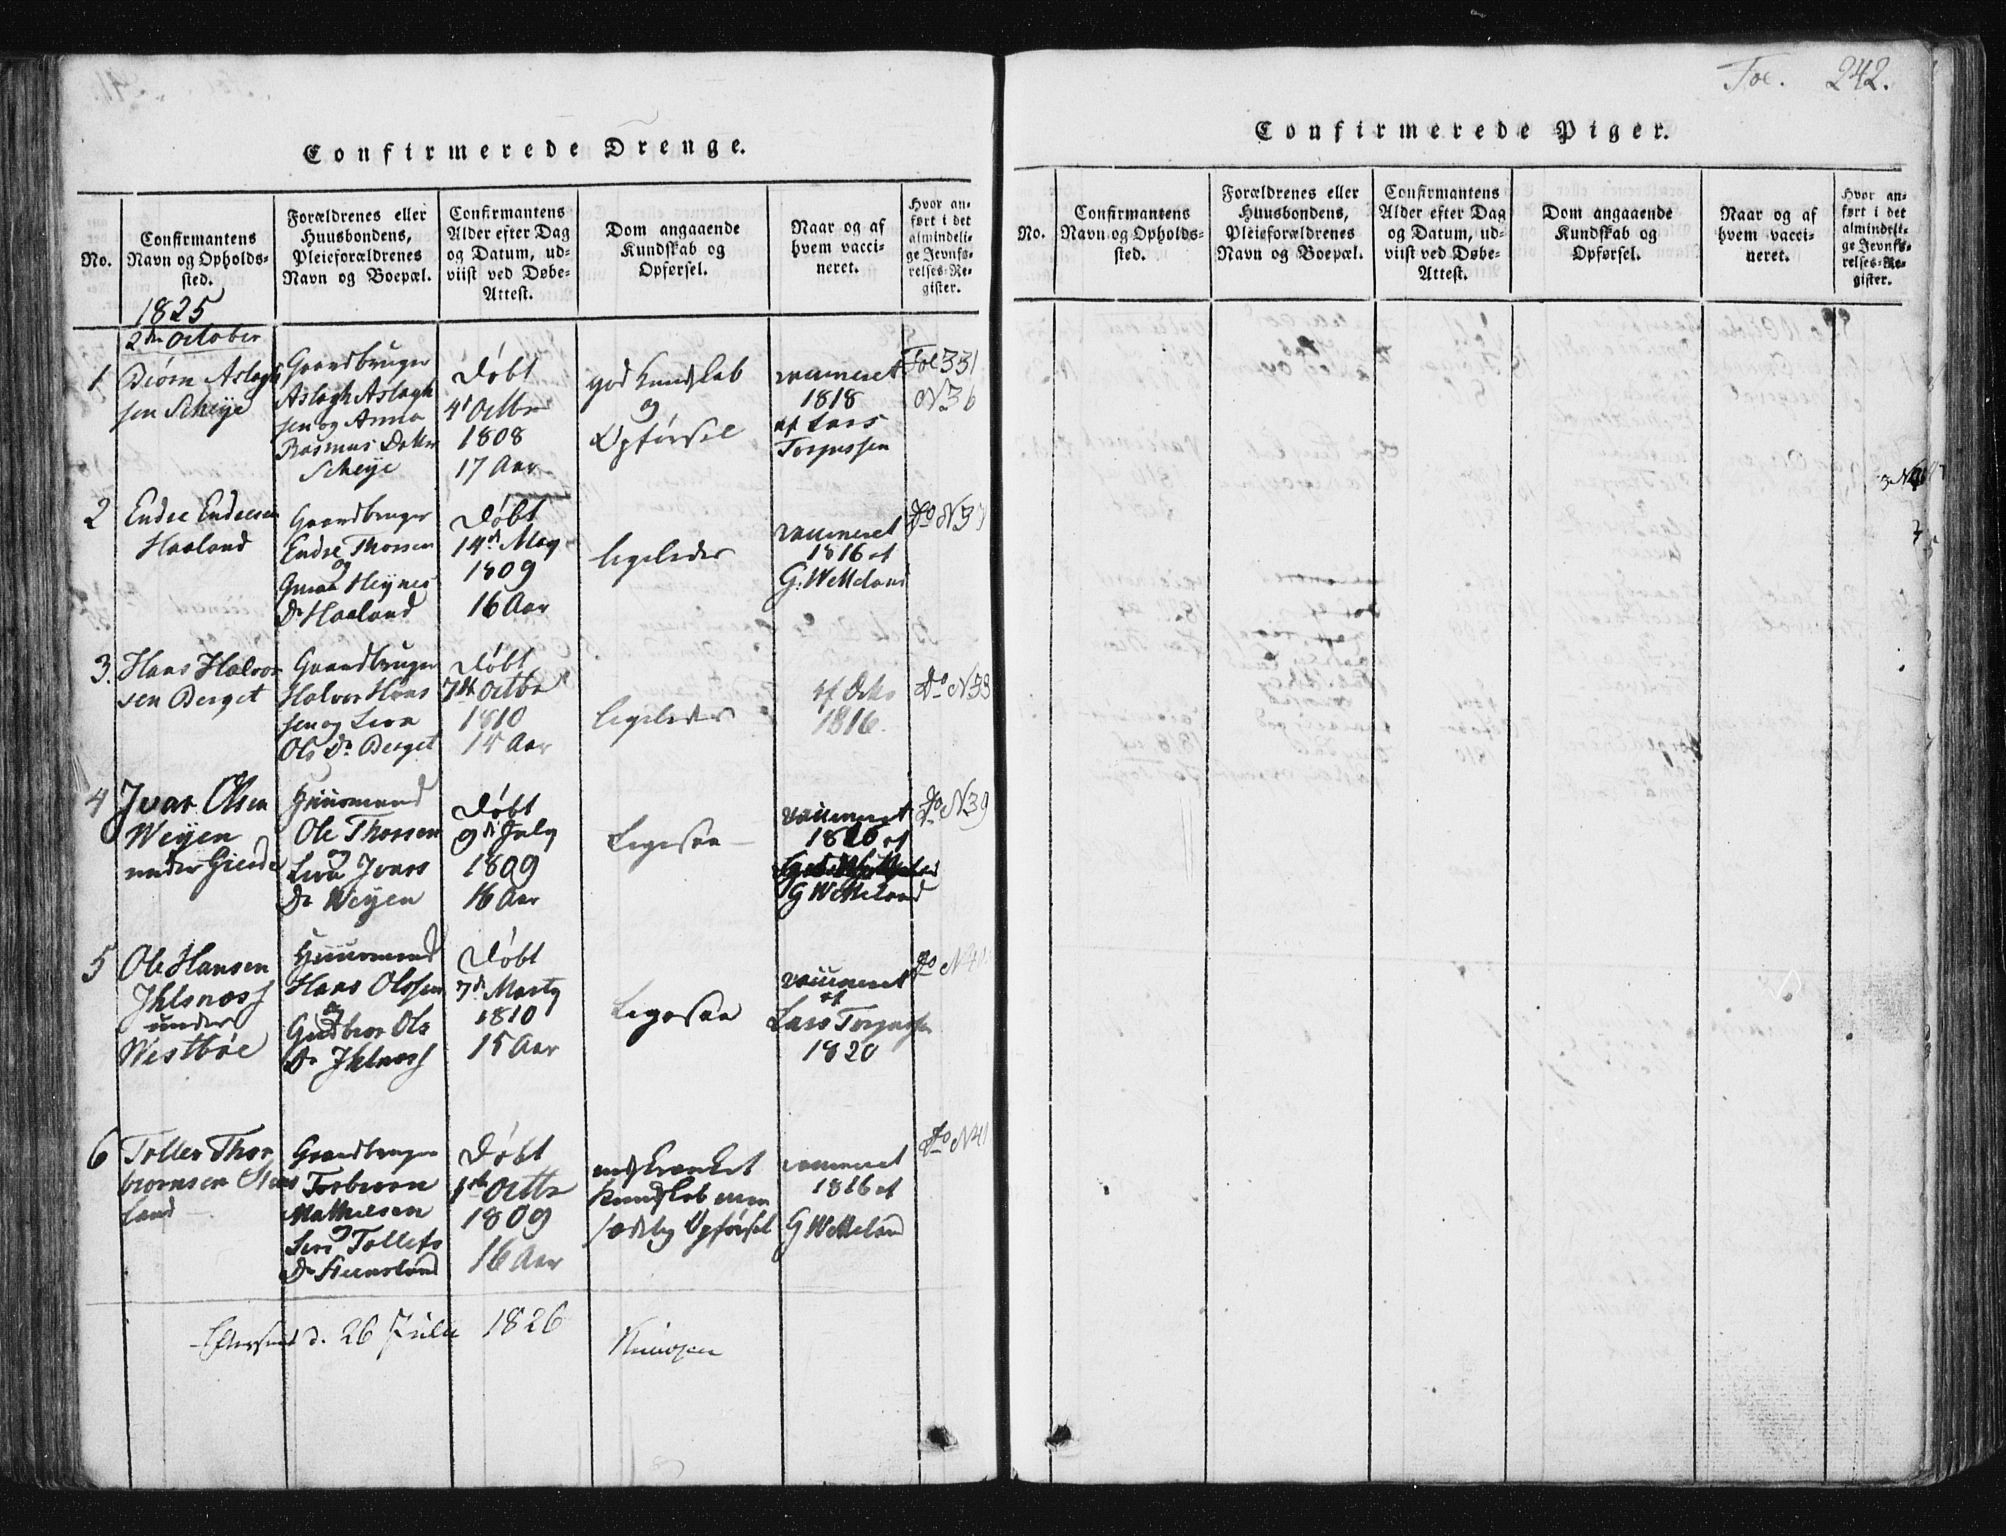 Fol. 242.
Confirmerede Drenge.
No.
Confirmantens
Navn og Opholds-
sted.
Forældrenes eller
Huusbondens,
Pleieforældrenes
Navn og Boepæl.
Confirmantens
Alder efter Dag
og Datum, ud-
viist ved Døbe-
Attest.
Dom angaaende
Kundskab og
Opførsel.
Naar og af
hvem vacci-
neret.
Hvor an-
ført i det
almindeli-
ge Jevnfø-
relses-Re-
gister.
1825
2den October
1
Biørn Aslagh
sen Scheye
Gaardbruger
Aslagh Aslagh
sen og Anna
Rasmus Datter
Scheye
Døbt
4d Octbr
1808
17 Aar
god Kundskab
og
Opførsel
vaccineret
1818
af Lars
Torgessen
Fol 331
N 36
2
Endre Endresen
Haaland
Gaardbruger
Endre Thorsen
og
Heynes
Dr Haaland
Døbt
14de May
1809
16 Aar
ligeledes
vaccineret
1816 af
G. Wetteland
Do N 37
3.
Hans Halvor
sen Berget
Gaardbruger
Halvor Hans
sen og Siva
Ols Dr Berget
Døbt
7de Octbr
1810
15 Aar
ligeledes
af Do
1816.
Do N 38
4
Ivar Olsen
Weyen
under Gierde
Huusmand
Ole Thorsen
og
Siva Ivars
Dr Weyen
Døbt
9de July
1809
16 Aar
Ligesaa
vaccineret
1816 af
G Wetteland
Do N 39
5
Ole Hansen
Ihlsnæss
under
Westbøe
Huusmand
Hans Olssen
og
Gudbior Ols
Dr Ihlsnæss
Døbt
7de Marty
1810
15 Aar
Ligesaa
vaccineret
af
Lars Torgessen
1820
Do N 40
6
Tollev Thor
biornsen
land
Gaardbruger
Torbiorn
Mathiesen
og
Siri Tollefs
Dr
Døbt
1de Octbr
1809
16 Aar
indskrænket
Kundskab men
sædelig Opførsel
vaccineret
1816 af
G Wetteland
Do N 41
Efterseet d. 26 Julii 1826
Confirmerede Piger.
No.
Confirmantens
Navn og Opholds-
sted.
Forældrenes eller
Huusbondens,
Pleieforældrenes
Navn og Boepæl.
Confirmantens
Alder efter Dag
og Datum, ud-
viist ved Døbe-
Attest.
Dom angaaende
Kundskab og
Opførsel.
Naar og af
hvem vacci-
neret.
Hvor an-
ført i det
almindeli-
ge Jevnfø-
relses-Re-
gister.